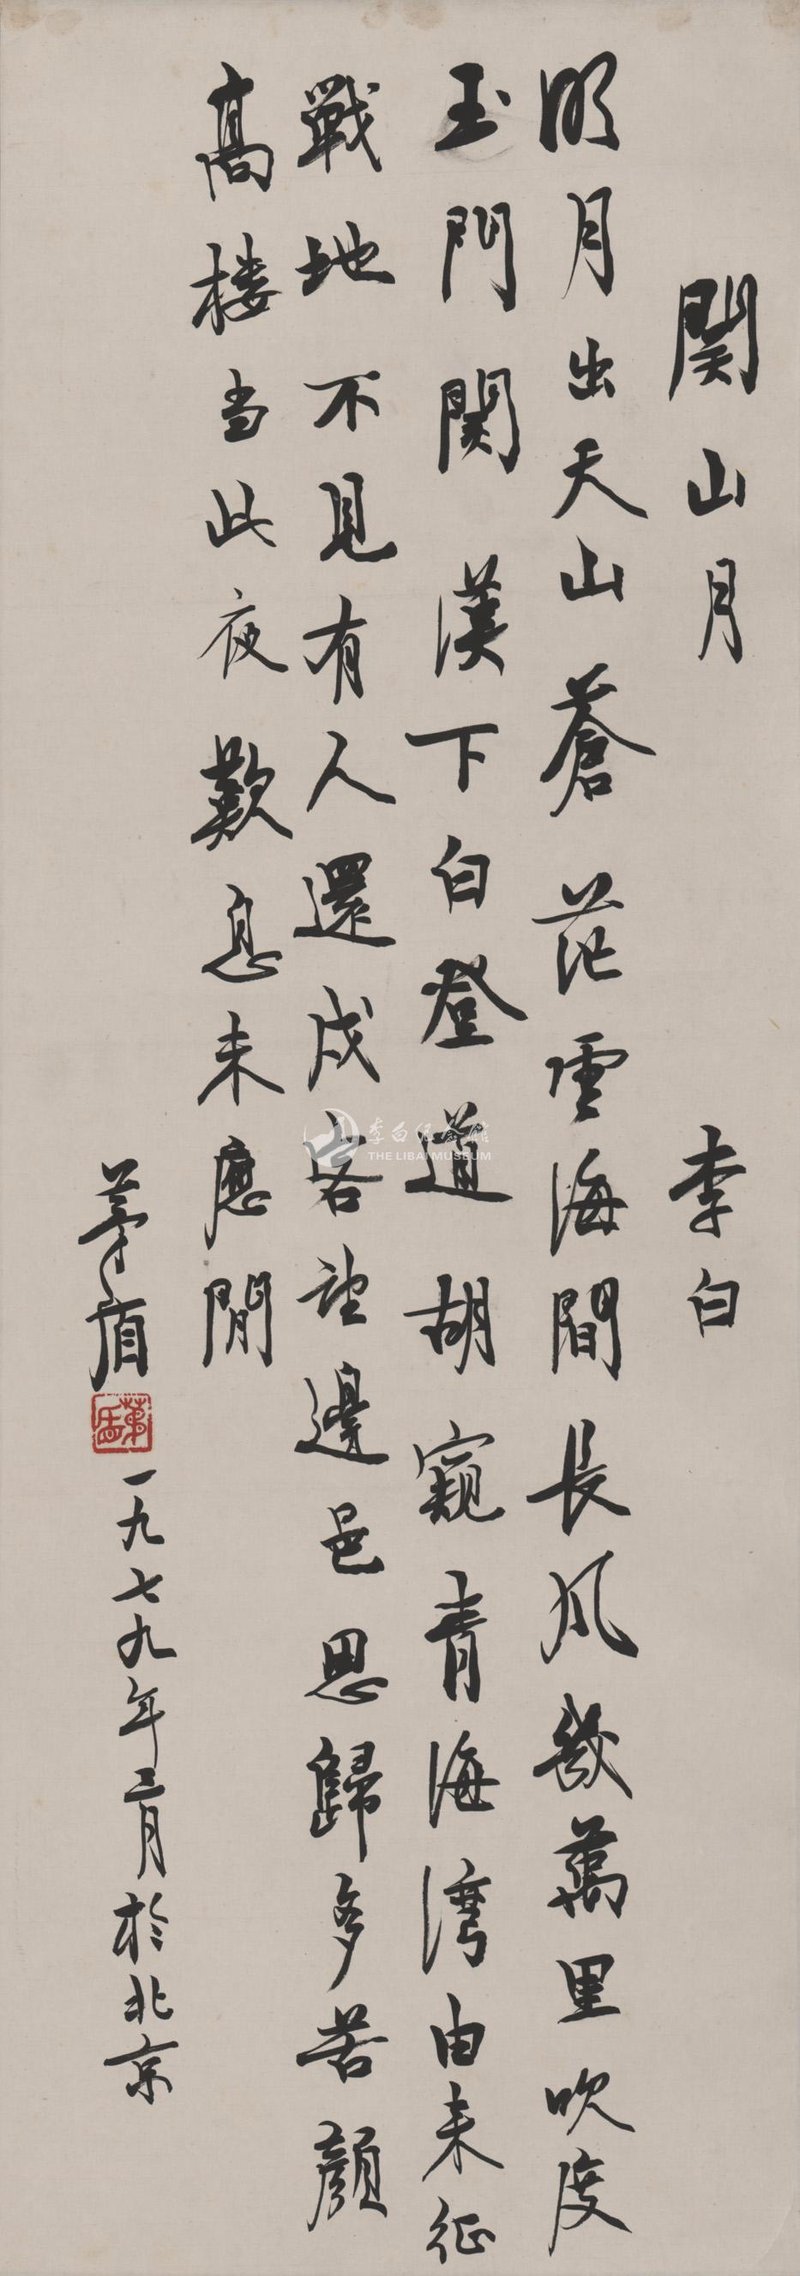 関山月 李白
明月出天山蒼茫雲海間長风幾萬里吹度
玉門関漢下白登道胡窺青海湾由来征
戰地不見有人還戍客望邊邑思歸多苦顏
高楼当此夜歎息未應閒
茅盾
一九七九年三月於北京
李白纪念馆
THE LIBAI MUSEUM